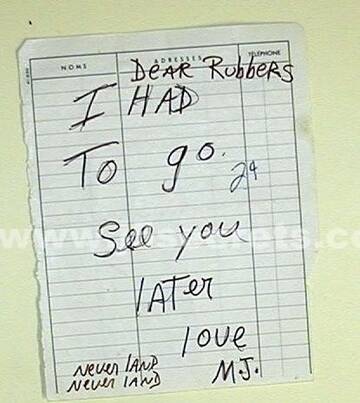 NOMS ADRESSES TÉLÉPHONE
DEAR Rubbers
I HAD
To go.
See you
later
love
M.J.
Never land
Never land